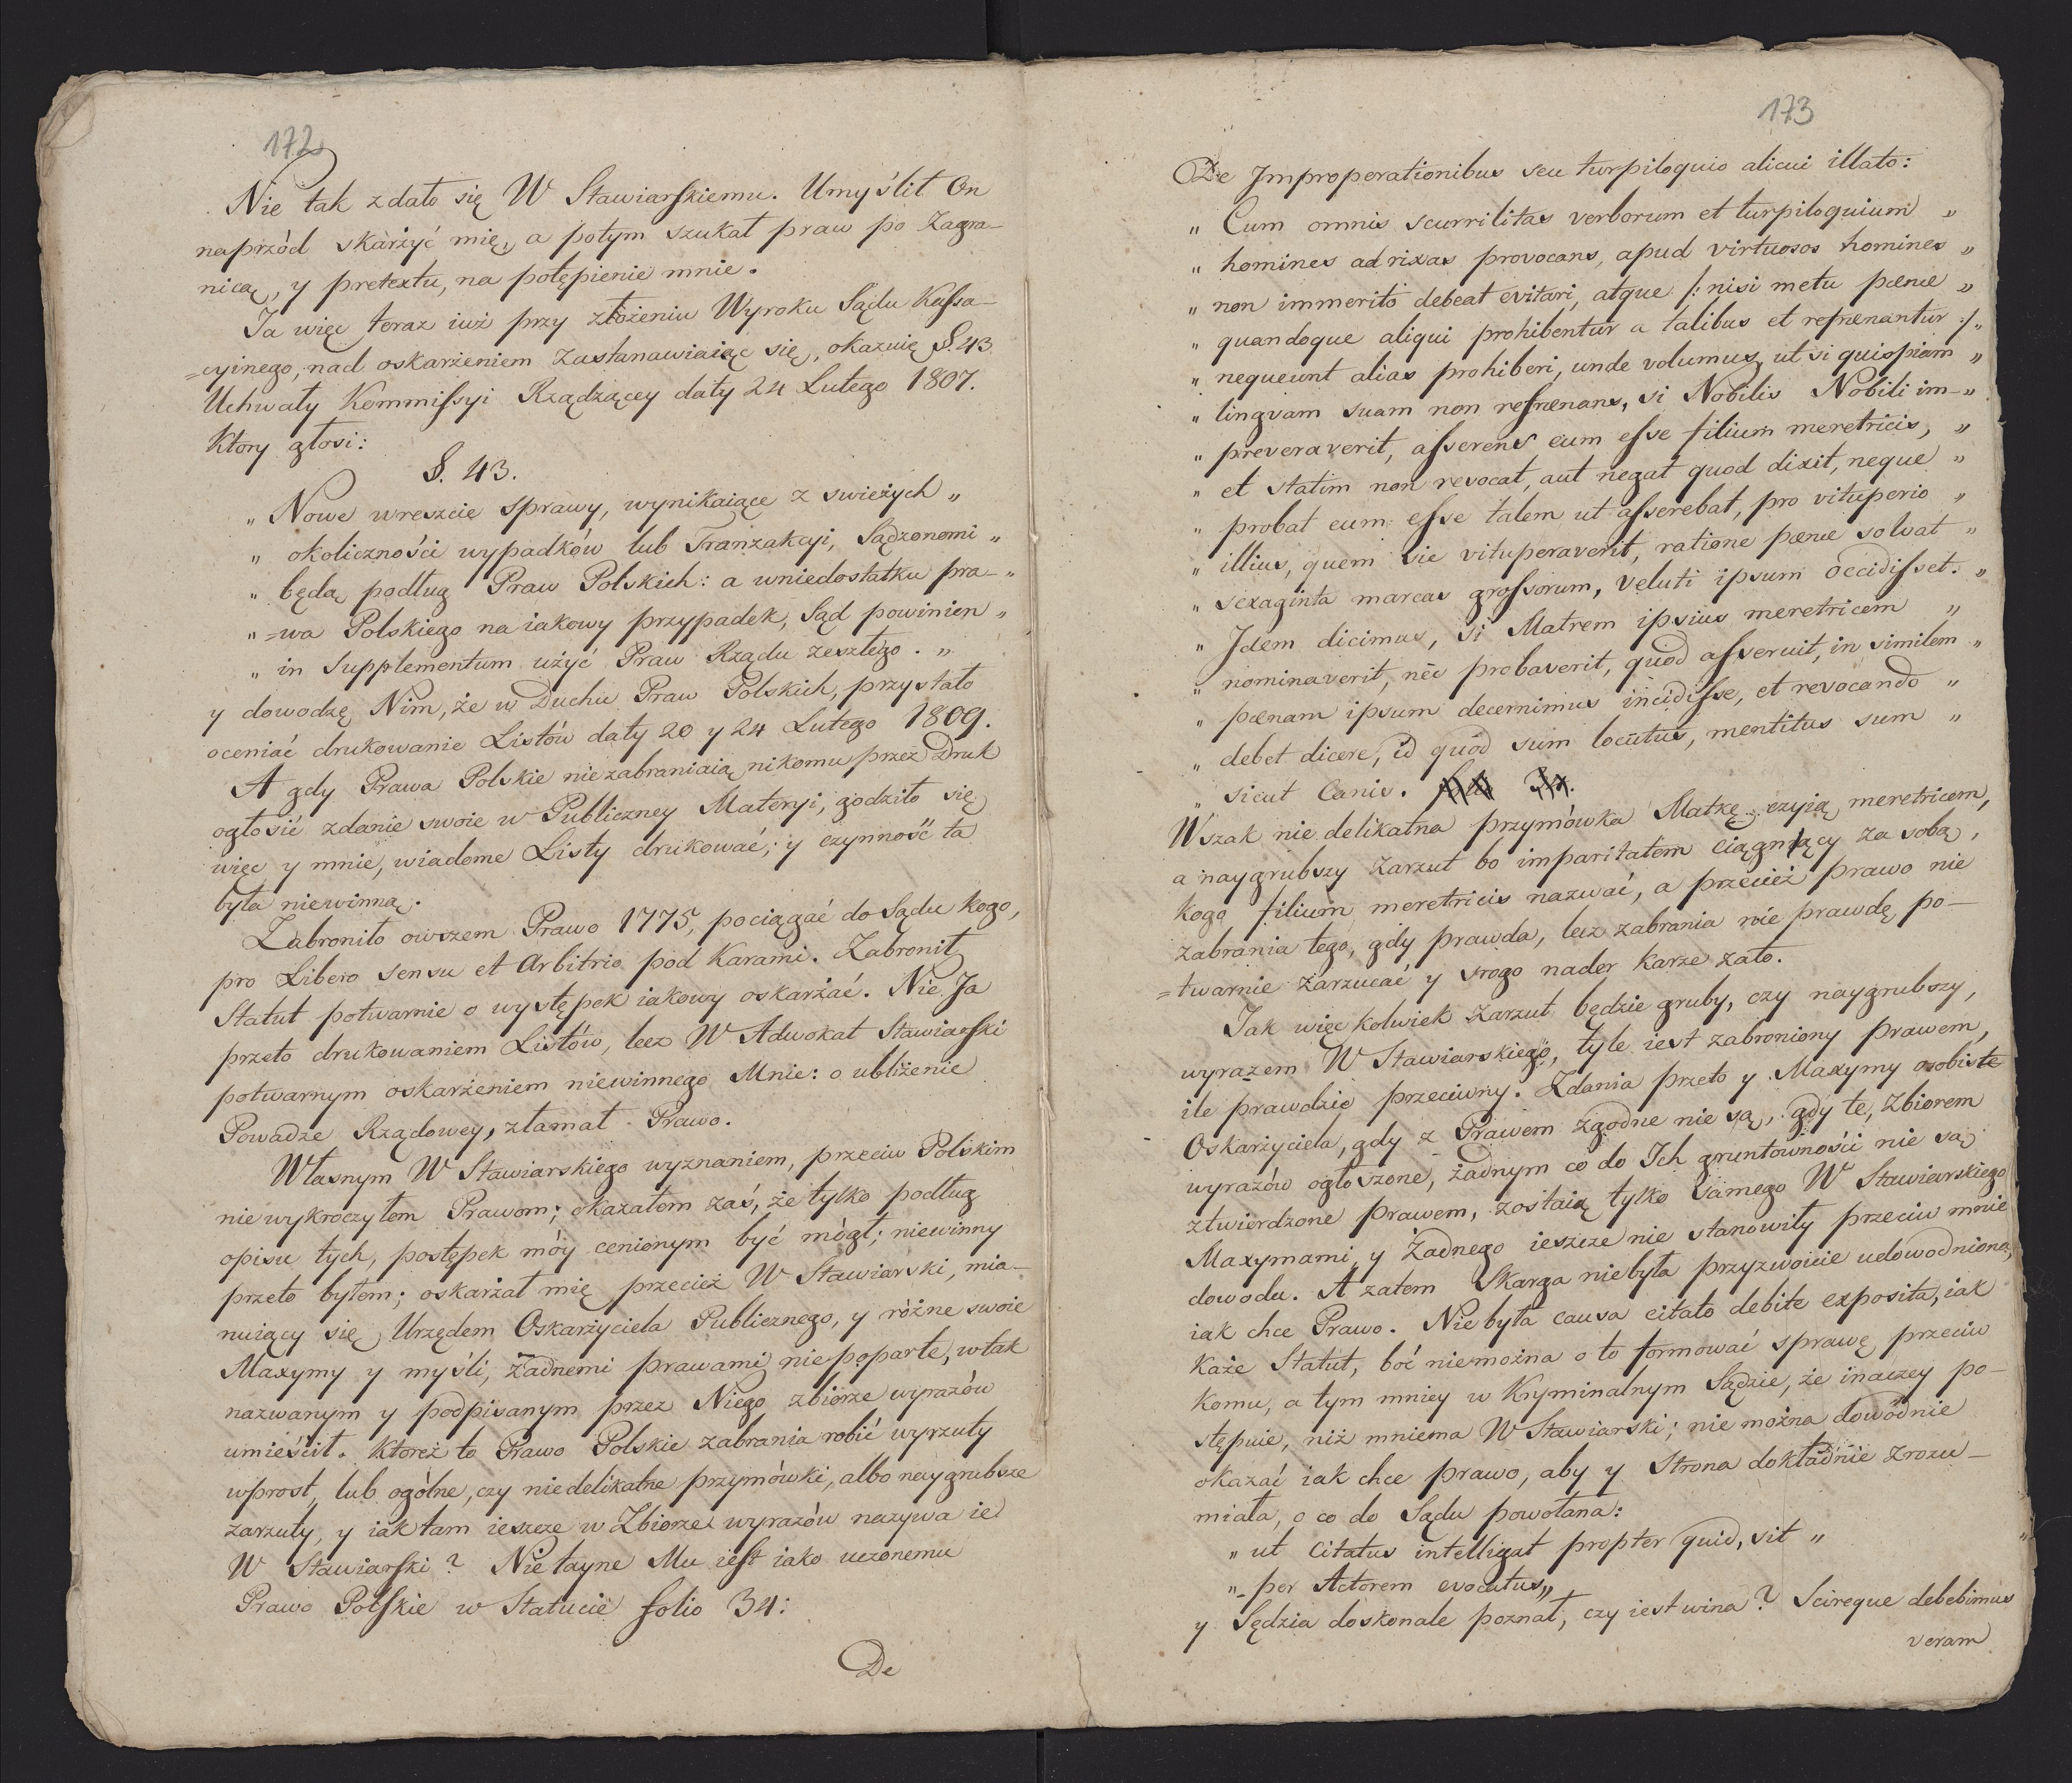 172
Nie tak zdało się W Stawiarskiemu. Umyślił On
naprzód skarżyć mię, a potym szukał praw po Zagra–
nicą, y pretextu, na potępienie mnie.
Ja więc teraz iuż przy złożeniu Wyroku Sądu Kassa–
=cyinego, nad oskarżeniem zastanawiaiąc się, okazuię §. 43
Uchwały Kommissyi Rządzącey daty 24 Lutego 1807.
Ktory głosi:
§. 43.
„ Nowe wreszcie sprawy, wynikaiące z swieżych „
„ okoliczności wypadków lub Tranzakcyi, Sądzonemi „
„ będą podług Praw Polskich: a wniedostatku pra– „
„ =wa Polskiego na iakowy przypadek, Sąd powinien „
„ in Supplementum użyć Praw Rządu zeszłego. „
y dowodzę Nim, że w Duchu Praw Polskich, przystało
oceniać drukowanie Listów daty 20 y 24 Lutego 1809.
A gdy Prawa Polskie niezabraniaią nikomu przez Druk
ogłosić zdanie swoie w Publiczney Materyi, godziło się
więc y mnie, wiadome Listy drukować; y czynność ta
była niewinną.
Zabroniło owszem Prawo 1775, pociągać do Sądu kogo,
pro Libero sensu et Arbitrio pod Karami. Zabronił
Statut potwarnie o występek iakowy oskarżać. Nie Ja
przeto drukowaniem Listów, lecz W Adwokat Stawiarski
potwarnym oskarżeniem niewinnego Mnie: o ubliżenie
Powadze Rządowey, złamał Prawo.
Własnym W Stawiarskiego wyznaniem, przeciw Polskim
nie wykroczyłem Prawom; okazałem zaś, że tylko podług
opisu tych, postępek móy cenionym być mógł; niewinny
przeto byłem; oskarżał mię przecież W Stawiarski, mia–
nuiący się Urzędem Oskarżyciela Publicznego, y różne swoie
Maxymy y myśli, żadnemi prawami niepoparte, wtak
nazwanym y podpisanym przez Niego zbiorze wyrazów
umieścił. Ktoreż to Prawo Polskie zabrania robić wyrzuty
wprost, lub ogólne, czy niedelikatne przymówki, albo naygrubsze
zarzuty, y iak tam ieszcze w Zbiorze wyrazów nazywa ie
W Stawiarski? Nie tayne Mu iest iako uczonemu
Prawo Polskie w Statucie folio 34:
De
173
De Improperationibus seu turpiloquio alicui illato:
„ Cum omnis scurrilitas verborum et turpiloquium „
„ homines ad rixas provocans, apud virtuosos homines „
„ non immerito debeat evitari, atque /: nisi metu pœnæ „
„ quandoque aliqui prohibentur a talibus et refrœnantur :/ „
„ nequeunt alias prohiberi, unde volumus, ut si quispiam „
„ lingvam suam non refrœnans, si Nobilis Nobili im– „
„ preveraverit, asserens eum esse filium meretricis, „
„ et statim non revocat, aut negat quod dixit, neque „
„ probat eum esse talem ut asserebat, pro vituperio „
„ illius, quem sic vituperaverit, ratione pœnæ solvat „
„ sexaginta marcas grossorum, veluti ipsum occidisset. „
„ Idem dicimus, si Matrem ipsius meretricem „
„ nominaverit, nec probaverit, quod asseruit, in similem „
„ pœnam ipsum decernimus incidisse, et revocando „
„ debet dicere, id quod sum locutus, mentitus sum „
„ sicut Canis.
Wszak nie delikatna przymówka Matkę czyią meretricem,
a naygrubszy Zarzut bo imparitatem ciągnący za sobą,
kogo filium meretricis nazwać, a przecież prawo nie
zabrania tego, gdy prawda, lecz zabrania nie prawdę po–
=twarnie zarzucać y srogo nader karze zato.
Jak więc kolwiek zarzut będzie gruby, czy naygrubszy,
wyrazem W Stawiarskiego, tyle iest zabroniony prawem,
ile prawdzie przeciwny. Zdania przeto y Maxymy osobiste
Oskarżyciela, gdy z Prawem zgodne nie są, gdy te, Zbiorem
wyrazów ogłoszone, żadnym co do Ich gruntowności nie są
ztwierdzone prawem, zostaią tylko samego W Stawiarskiego
Maxymami, y żadnego ieszcze nie stanowiły przeciw mnie
dowodu. A zatem Skarga niebyła przyzwoicie udowodnioną,
iak chce Prawo. Nie była causa citato debite exposita, iak
każe Statut, boć niemożna o to formować sprawę przeciw
komu, a tym mniey w Kryminalnym Sądzie, że inaczey po–
stępuie, niż mniema W Stawiarski; nie można dowodnie
okazać iak chce prawo, aby y Strona dokładnie zrozu–
miała, o co do Sądu powołana:
„ ut Citatus intelligat propter quid, sit „
„ per Actorem evocatus „
y Sędzia doskonale poznał, czy iest wina? Scireque debebimus
veram